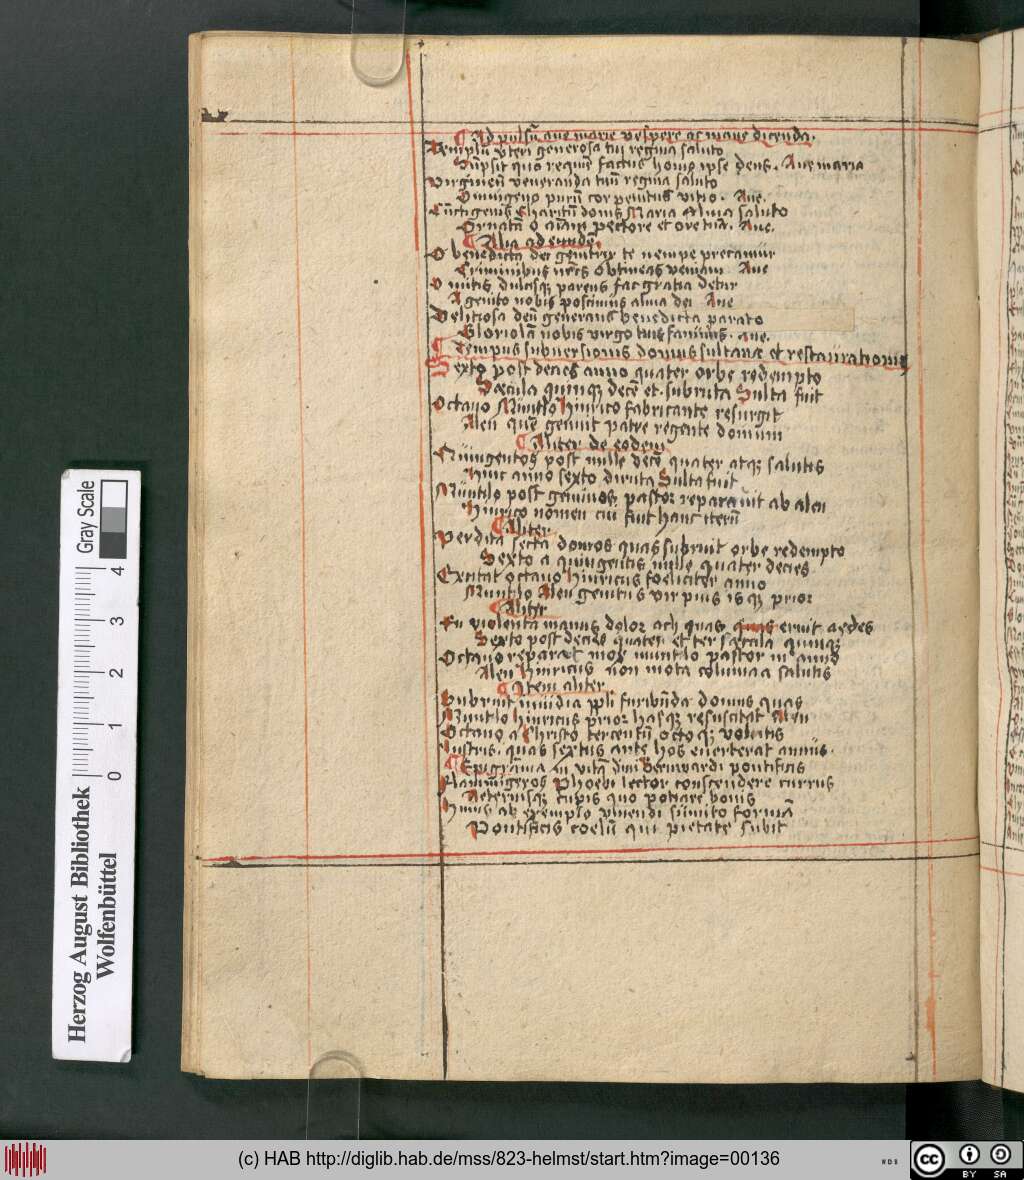 Ad pulsū aue marie vespere ac mane dicenda.
Templū vteri generosa tui regina saluto
Sūpsit quo requiē factus homo ipse deus. Aue maria
Virgineū veneranda tuū regina saluto
purū cor penitus vitio. Aue.
Cūctigenis Charitū donis Maria Alma saluto
Ornatā o aīam pectore et ore tuā. Aue.
Alia ad eundē.
O benedicta dei genitrix te nempe precamur
Criminibus nr̄is obtineas veniam. Aue
O mitis dulcisqꝫ parens fac gratia detur
A genito nobis poscimus alma dei Aue
Delitiosa deū generans benedicta parato
Gloriolā nobis virgo tuis famulis. aue.
Tempus subuersionis domus sultanæ et restaurationis
Sexto post decies anno quater orbe redempto
Sæcula quinqꝫ decē et subruta Sulta fuit
Octauo Hinrico fabricante resurgit
Alen quē genuit patre regente domum
Aliter de eodem
post mille decē quater atqꝫ salutis
Hinc anno sexto diruta Sulta fuit
post geminos pastor reparauit ab alen
Hinrico nomen cui fuit hanc iterū
Aliter
Perdita secta domos quas subruit orbe redempto
Sexto a quingentis mille quater decies
Excitat octauo Hinricus foeliciter anno
Alen genitus vir pius is qꝫ prior
Aliter
En violenta manus dolor ach quas quas eruit aedes
Sexto post decies quater et ter sæcula quinqꝫ
Octauo reparat mox pastor in anno
Alen Hinricus non mota columna salutis
Item aliter
Subruit inuidia ppli furibūda domus quas
Hinricus prior hasqꝫ resuscitat Alen
Octauo a Christo tercentū octoqꝫ volutis
lustris. quas sextus ante hos euerterat annus.
Epigrāma in vitā diui Bernwardi pontificis
Flammigeros Phoebi lector conscendere currus
Aeternisqꝫ cupis quo potiare bonis
Huius ab exemplo viuendi sumito formā
Pontificis coelū qui pietate subit
Gray Scale
0 1 2 3 4
Herzog August Bibliothek
Wolfenbüttel
(c) HAB http://diglib.hab.de/mss/823-helmst/start.htm?image=00136
WDB
cc
BY SA